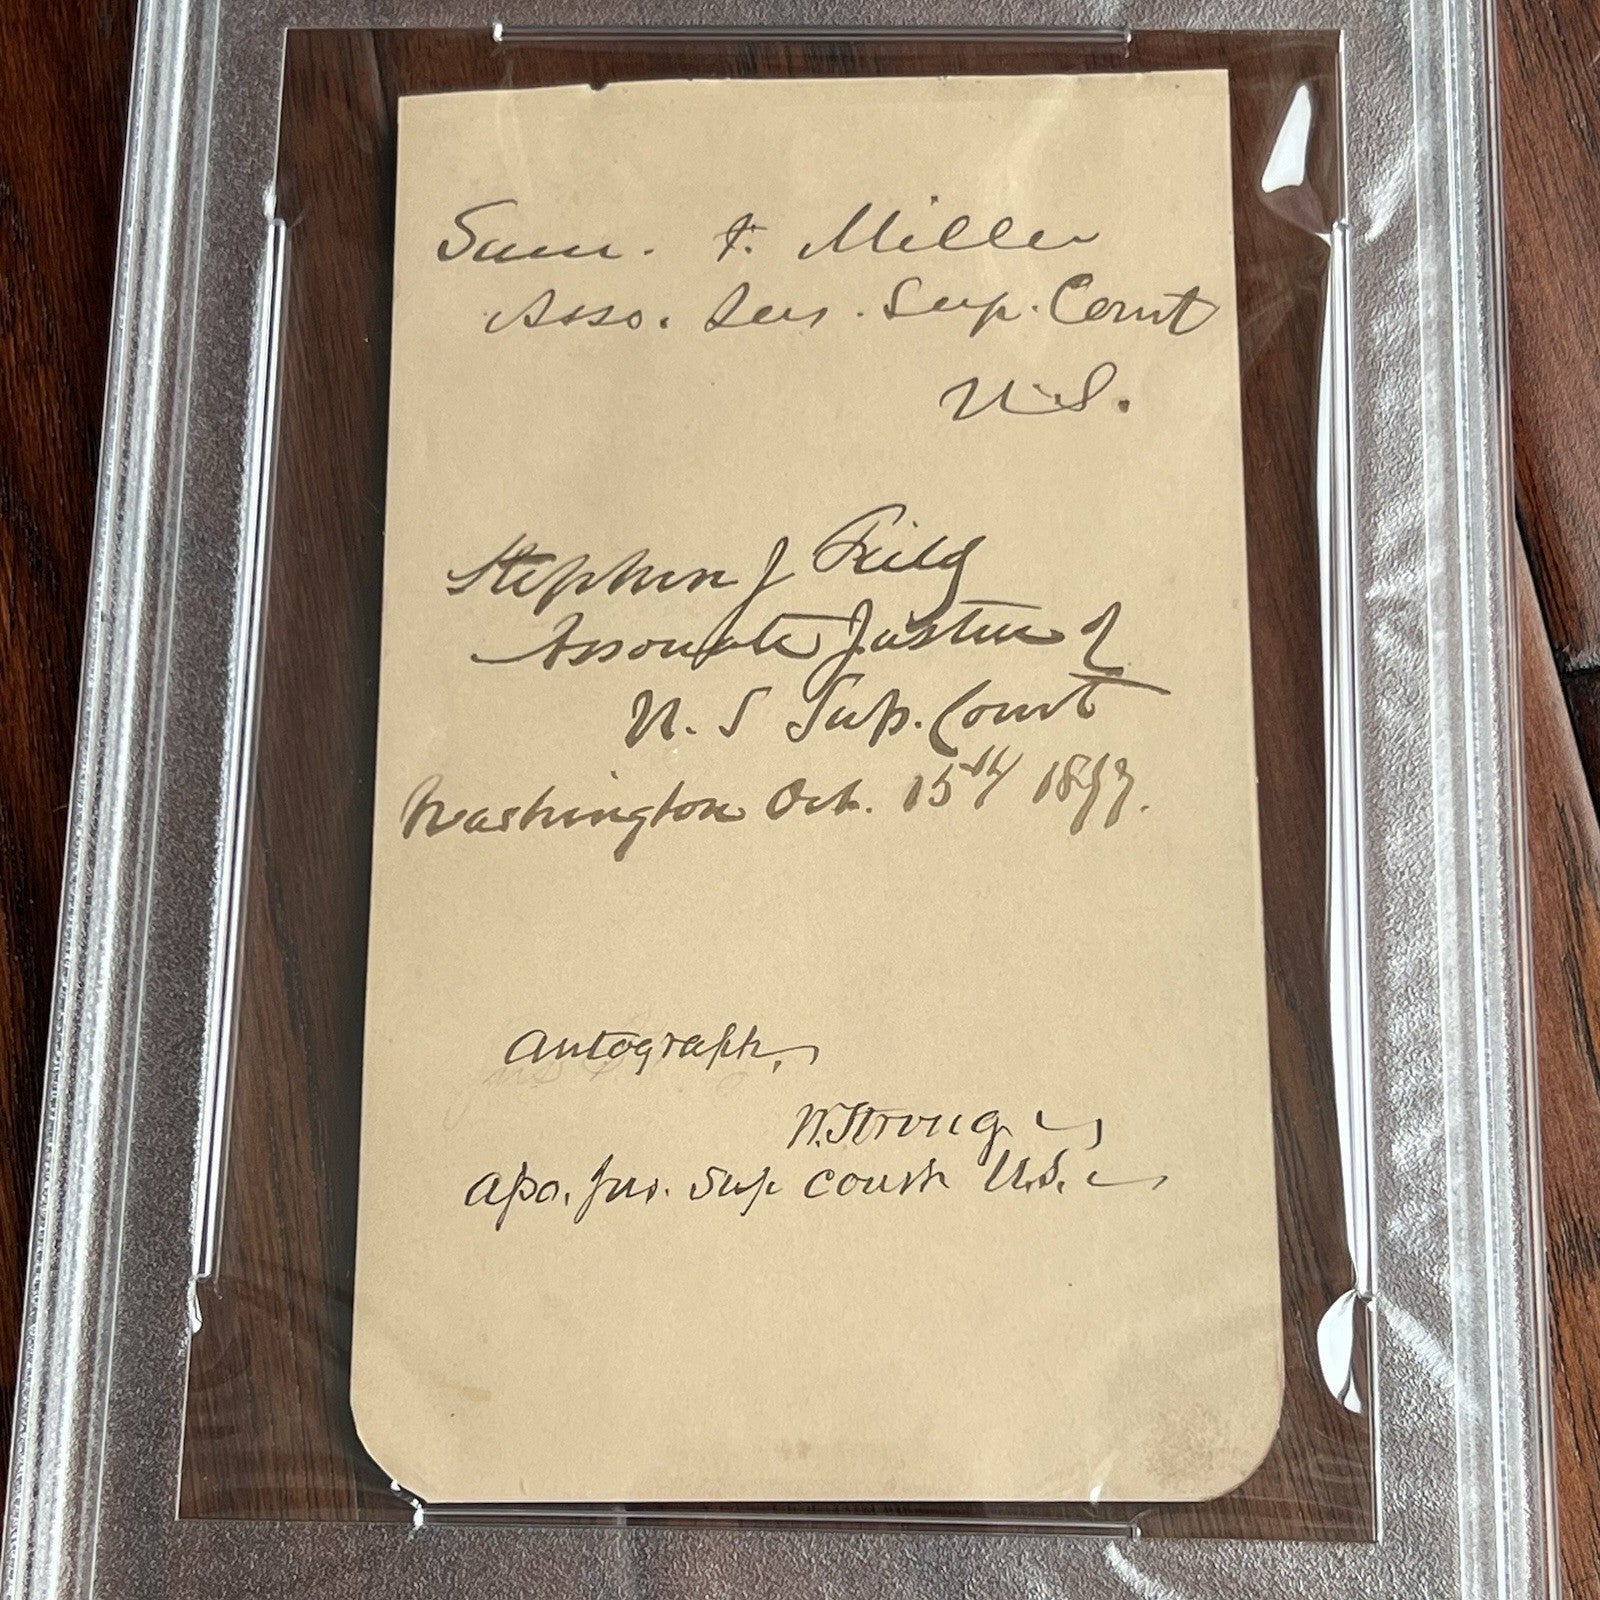 Sam. F. Miller
Asso. Jus. Sup. Court
U.S.
Stephen J Field
Associate Justice of
U. S Sup. Court
Washington Oct. 15th 1877.
Autograph,
W. Strong
Asso. Jus. Sup Court U.S.